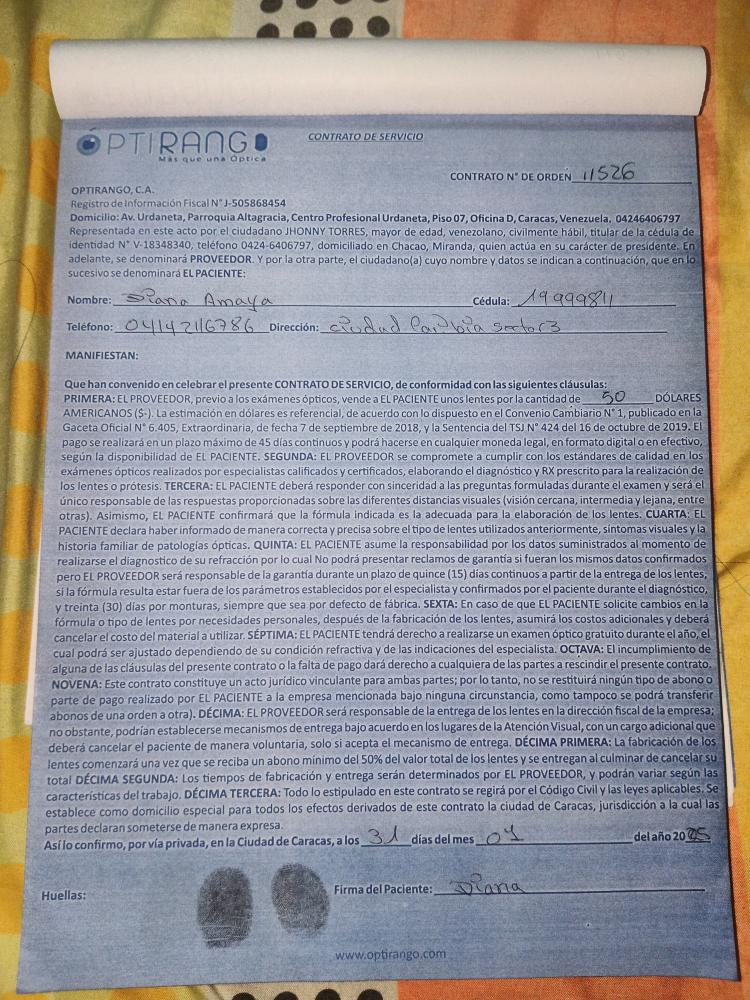 ÓPTIRANGO
Más que una Óptica
CONTRATO DE SERVICIO
CONTRATO N° DE ORDEN 11526
OPTIRANGO, C.A.
Registro de Información Fiscal N° J-505868454
Domicilio: Av. Urdaneta, Parroquia Altagracia, Centro Profesional Urdaneta, Piso 07, Oficina D, Caracas, Venezuela, 04246406797
Representada en este acto por el ciudadano JHONNY TORRES, mayor de edad, venezolano, civilmente hábil, titular de la cédula de
identidad N° V-18348340, teléfono 0424-6406797, domiciliado en Chacao, Miranda, quien actúa en su carácter de presidente. En
adelante, se denominará PROVEEDOR. Y por la otra parte, el ciudadano(a) cuyo nombre y datos se indican a continuación, que en lo
sucesivo se denominará EL PACIENTE:
Nombre: Diana Amaya Cédula: 19999811
Teléfono: 04142116786 Dirección: ciudad Caribia sector3
MANIFIESTAN:
Que han convenido en celebrar el presente CONTRATO DE SERVICIO, de conformidad con las siguientes cláusulas:
PRIMERA: EL PROVEEDOR, previo a los exámenes ópticos, vende a EL PACIENTE unos lentes por la cantidad de 50 DÓLARES
AMERICANOS ($-). La estimación en dólares es referencial, de acuerdo con lo dispuesto en el Convenio Cambiario N° 1, publicado en la
Gaceta Oficial N° 6.405, Extraordinaria, de fecha 7 de septiembre de 2018, y la Sentencia del TSJ N° 424 del 16 de octubre de 2019. El
pago se realizará en un plazo máximo de 45 días continuos y podrá hacerse en cualquier moneda legal, en formato digital o en efectivo,
según la disponibilidad de EL PACIENTE. SEGUNDA: EL PROVEEDOR se compromete a cumplir con los estándares de calidad en los
exámenes ópticos realizados por especialistas calificados y certificados, elaborando el diagnóstico y RX prescrito para la realización de
los lentes o prótesis. TERCERA: EL PACIENTE deberá responder con sinceridad a las preguntas formuladas durante el examen y será el
único responsable de las respuestas proporcionadas sobre las diferentes distancias visuales (visión cercana, intermedia y lejana, entre
otras). Asimismo, EL PACIENTE confirmará que la fórmula indicada es la adecuada para la elaboración de los lentes. CUARTA: EL
PACIENTE declara haber informado de manera correcta y precisa sobre el tipo de lentes utilizados anteriormente, síntomas visuales y la
historia familiar de patologías ópticas. QUINTA: EL PACIENTE asume la responsabilidad por los datos suministrados al momento de
realizarse el diagnostico de su refracción por lo cual No podrá presentar reclamos de garantía si fueran los mismos datos confirmados
pero EL PROVEEDOR será responsable de la garantía durante un plazo de quince (15) días continuos a partir de la entrega de los lentes,
si la fórmula resulta estar fuera de los parámetros establecidos por el especialista y confirmados por el paciente durante el diagnóstico,
y treinta (30) días por monturas, siempre que sea por defecto de fábrica. SEXTA: En caso de que EL PACIENTE solicite cambios en la
fórmula o tipo de lentes por necesidades personales, después de la fabricación de los lentes, asumirá los costos adicionales y deberá
cancelar el costo del material a utilizar. SÉPTIMA: EL PACIENTE tendrá derecho a realizarse un examen óptico gratuito durante el año, el
cual podrá ser ajustado dependiendo de su condición refractiva y de las indicaciones del especialista. OCTAVA: El incumplimiento de
alguna de las cláusulas del presente contrato o la falta de pago dará derecho a cualquiera de las partes a rescindir el presente contrato.
NOVENA: Este contrato constituye un acto jurídico vinculante para ambas partes; por lo tanto, no se restituirá ningún tipo de abono o
parte de pago realizado por EL PACIENTE a la empresa mencionada bajo ninguna circunstancia, como tampoco se podrá transferir
abonos de una orden a otra). DÉCIMA: EL PROVEEDOR será responsable de la entrega de los lentes en la dirección fiscal de la empresa;
no obstante, podrían establecerse mecanismos de entrega bajo acuerdo en los lugares de la Atención Visual, con un cargo adicional que
deberá cancelar el paciente de manera voluntaria, solo si acepta el mecanismo de entrega. DÉCIMA PRIMERA: La fabricación de los
lentes comenzará una vez que se reciba un abono mínimo del 50% del valor total de los lentes y se entregan al culminar de cancelar su
total DÉCIMA SEGUNDA: Los tiempos de fabricación y entrega serán determinados por EL PROVEEDOR, y podrán variar según las
características del trabajo. DÉCIMA TERCERA: Todo lo estipulado en este contrato se regirá por el Código Civil y las leyes aplicables. Se
establece como domicilio especial para todos los efectos derivados de este contrato la ciudad de Caracas, jurisdicción a la cual las
partes declaran someterse de manera expresa.
Así lo confirmo, por vía privada, en la Ciudad de Caracas, a los 31 días del mes 07 del año 2025
Huellas:
Firma del Paciente: Diana
www.optirango.com